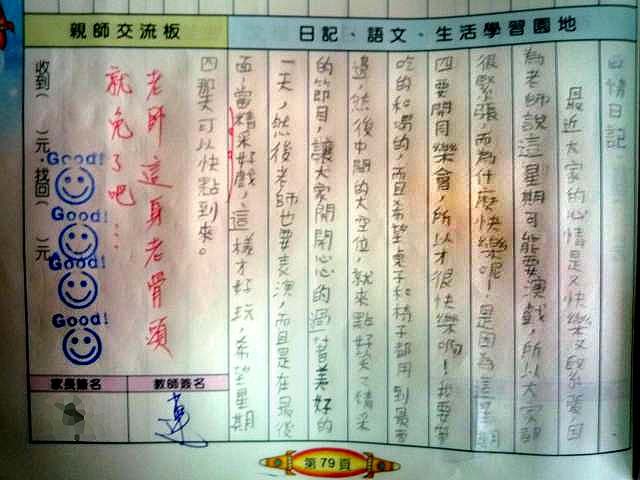 親師交流板
日記、語文、生活學習園地
心情日記
最近大家的心情是又快樂又緊張因
為老師說這星期可能要演戲,所以大家都
很緊張,而為什麼快樂呢!是因為這星期
四要開同樂會,所以才很快樂啊!我要帶
吃的和喝的,而且希望桌子和椅子都用到最旁
邊,然後中間的大空位,就來點好笑又精采
的節目,讓大家開開心心的過著美好的
一天,然後老師也要表演,而且是在最後
面,當精采好戲,這樣才好玩,希望星期
四那天可以快點到來。
老師這身老骨頭
就免了吧…
收到( )元.找回( )元
Good!
Good!
Good!
Good!
家長簽名
教師簽名
蓮
第79頁